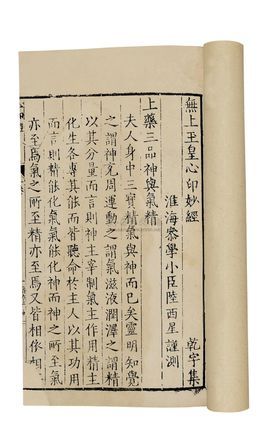 無上玉皇心印妙經
乾字集
淮海參學小臣陸西星謹測
上藥三品神與氣精
夫人身中三寶精氣與神而已矣靈明知覺
之謂神充周運動之謂氣滋液潤澤之謂精
以其分量而言則神主宰制氣主作用精主
化生各專其能而皆聽命於主人以其功用
而言則精能化氣氣能化神而神之所至氣
亦至焉氣之所至精亦至焉又皆相依相